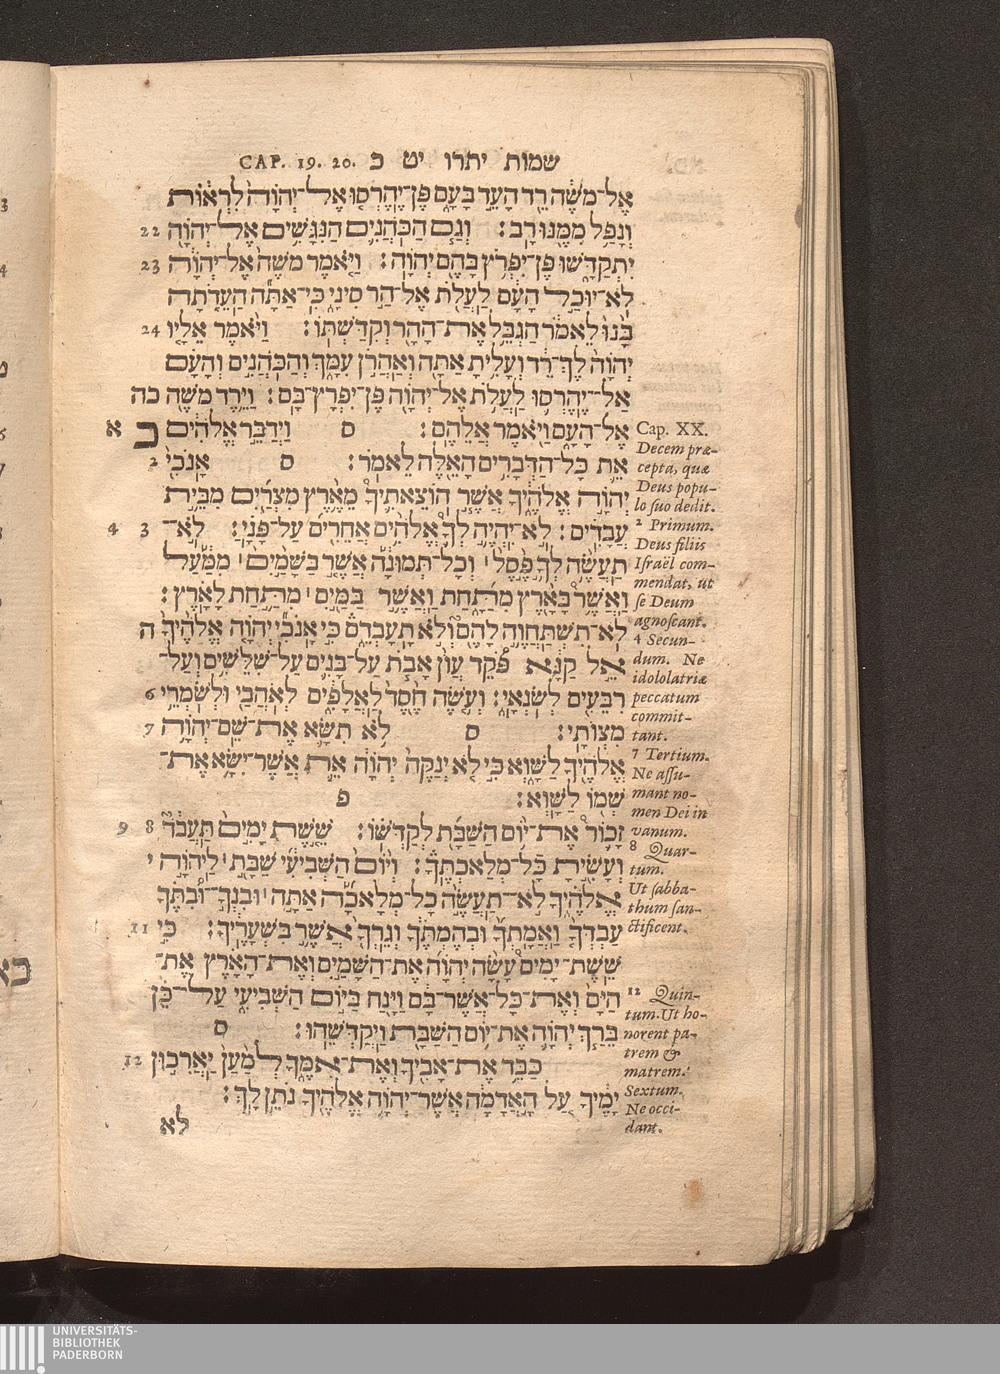 שמות יתרו יט כ CAP. 19. 20.
אֶל־מֹשֶׁה רֵד הָעֵד בָּעָם פֶּן־יֶהֶרְסוּ אֶל־יְהוָֹה לִרְאוֹת
וְנָפַל מִמֶּנּוּ רָב׃ וְגַם הַכֹּהֲנִים הַנִּגָּשִׁים אֶל־יְהוָֹה 22
יִתְקַדָּשׁוּ פֶּן־יִפְרֹץ בָּהֶם יְהוָֹה׃ וַיֹּאמֶר מֹשֶׁה אֶל־יְהוָֹה 23
לֹא־יוּכַל הָעָם לַעֲלֹת אֶל־הַר סִינָי כִּי־אַתָּה הַעֵדֹתָה
בָּנוּ לֵאמֹר הַגְבֵּל אֶת־הָהָר וְקִדַּשְׁתּוֹ׃ וַיֹּאמֶר אֵלָיו 24
יְהוָֹה לֶךְ־רֵד וְעָלִיתָ אַתָּה וְאַהֲרֹן עִמָּךְ וְהַכֹּהֲנִים וְהָעָם
אַל־יֶהֶרְסוּ לַעֲלֹת אֶל־יְהוָֹה פֶּן־יִפְרָץ־בָּם׃ וַיֵּרֶד מֹשֶׁה כה
אֶל־הָעָם וַיֹּאמֶר אֲלֵהֶם׃ ס וַיְדַבֵּר אֱלֹהִים כ א
אֵת כָּל־הַדְּבָרִים הָאֵלֶּה לֵאמֹר׃ ס אָנֹכִי 2
יְהוָֹה אֱלֹהֶיךָ אֲשֶׁר הוֹצֵאתִיךָ מֵאֶרֶץ מִצְרַיִם מִבֵּית
עֲבָדִים׃ לֹא־יִהְיֶה לְךָ אֱלֹהִים אֲחֵרִים עַל־פָּנָי׃ לֹא־ 3 4
תַעֲשֶׂה לְךָ פֶסֶל וְכָל־תְּמוּנָה אֲשֶׁר בַּשָּׁמַיִם מִמַּעַל
וַאֲשֶׁר בָּאָרֶץ מִתָּחַת וַאֲשֶׁר בַּמַּיִם מִתַּחַת לָאָרֶץ׃
לֹא־תִשְׁתַּחֲוֶה לָהֶם וְלֹא תָעָבְדֵם כִּי אָנֹכִי יְהוָֹה אֱלֹהֶיךָ ה
אֵל קַנָּא פֹּקֵד עֲוֹן אָבֹת עַל־בָּנִים עַל־שִׁלֵּשִׁים וְעַל־
רִבֵּעִים לְשֹׂנְאָי׃ וְעֹשֶׂה חֶסֶד לַאֲלָפִים לְאֹהֲבַי וּלְשֹׁמְרֵי 6
מִצְוֹתָי׃ ס לֹא תִשָּׂא אֶת־שֵׁם־יְהוָֹה 7
אֱלֹהֶיךָ לַשָּׁוְא כִּי לֹא יְנַקֶּה יְהוָֹה אֵת אֲשֶׁר־יִשָּׂא אֶת־
שְׁמוֹ לַשָּׁוְא׃ פ
זָכוֹר אֶת־יוֹם הַשַּׁבָּת לְקַדְּשׁוֹ׃ שֵׁשֶׁת יָמִים תַּעֲבֹד 8 9
וְעָשִׂיתָ כָּל־מְלַאכְתֶּךָ׃ וְיוֹם הַשְּׁבִיעִי שַׁבָּת לַיהוָֹה י
אֱלֹהֶיךָ לֹא־תַעֲשֶׂה כָל־מְלָאכָה אַתָּה וּבִנְךָ־וּבִתֶּךָ
עַבְדְּךָ וַאֲמָתְךָ וּבְהֶמְתֶּךָ וְגֵרְךָ אֲשֶׁר בִּשְׁעָרֶיךָ׃ כִּי 11
שֵׁשֶׁת־יָמִים עָשָׂה יְהוָֹה אֶת־הַשָּׁמַיִם וְאֶת־הָאָרֶץ אֶת־
הַיָּם וְאֶת־כָּל־אֲשֶׁר־בָּם וַיָּנַח בַּיּוֹם הַשְּׁבִיעִי עַל־כֵּן
בֵּרַךְ יְהוָֹה אֶת־יוֹם הַשַּׁבָּת וַיְקַדְּשֵׁהוּ׃ ס
כַּבֵּד אֶת־אָבִיךָ וְאֶת־אִמֶּךָ לְמַעַן יַאֲרִכוּן 12
יָמֶיךָ עַל הָאֲדָמָה אֲשֶׁר־יְהוָֹה אֱלֹהֶיךָ נֹתֵן לָךְ׃
לא
Cap. XX.
Decem præ-
cepta, quæ
Deus popu-
lo suo dedit.
2 Primum.
Deus filiis
Israël com-
mendat, ut
se Deum
agnoscant.
4 Secun-
dum. Ne
idololatriæ
peccatum
commit-
tant.
7 Tertium.
Ne assu-
mant no-
men Dei in
vanum.
8 Quar-
tum.
Ut sabba-
thum san-
ctificent.
12 Quin-
tum. Ut ho-
norent pa-
trem &
matrem.
Sextum.
Ne occi-
dant.
UNIVERSITÄTS-
BIBLIOTHEK
PADERBORN